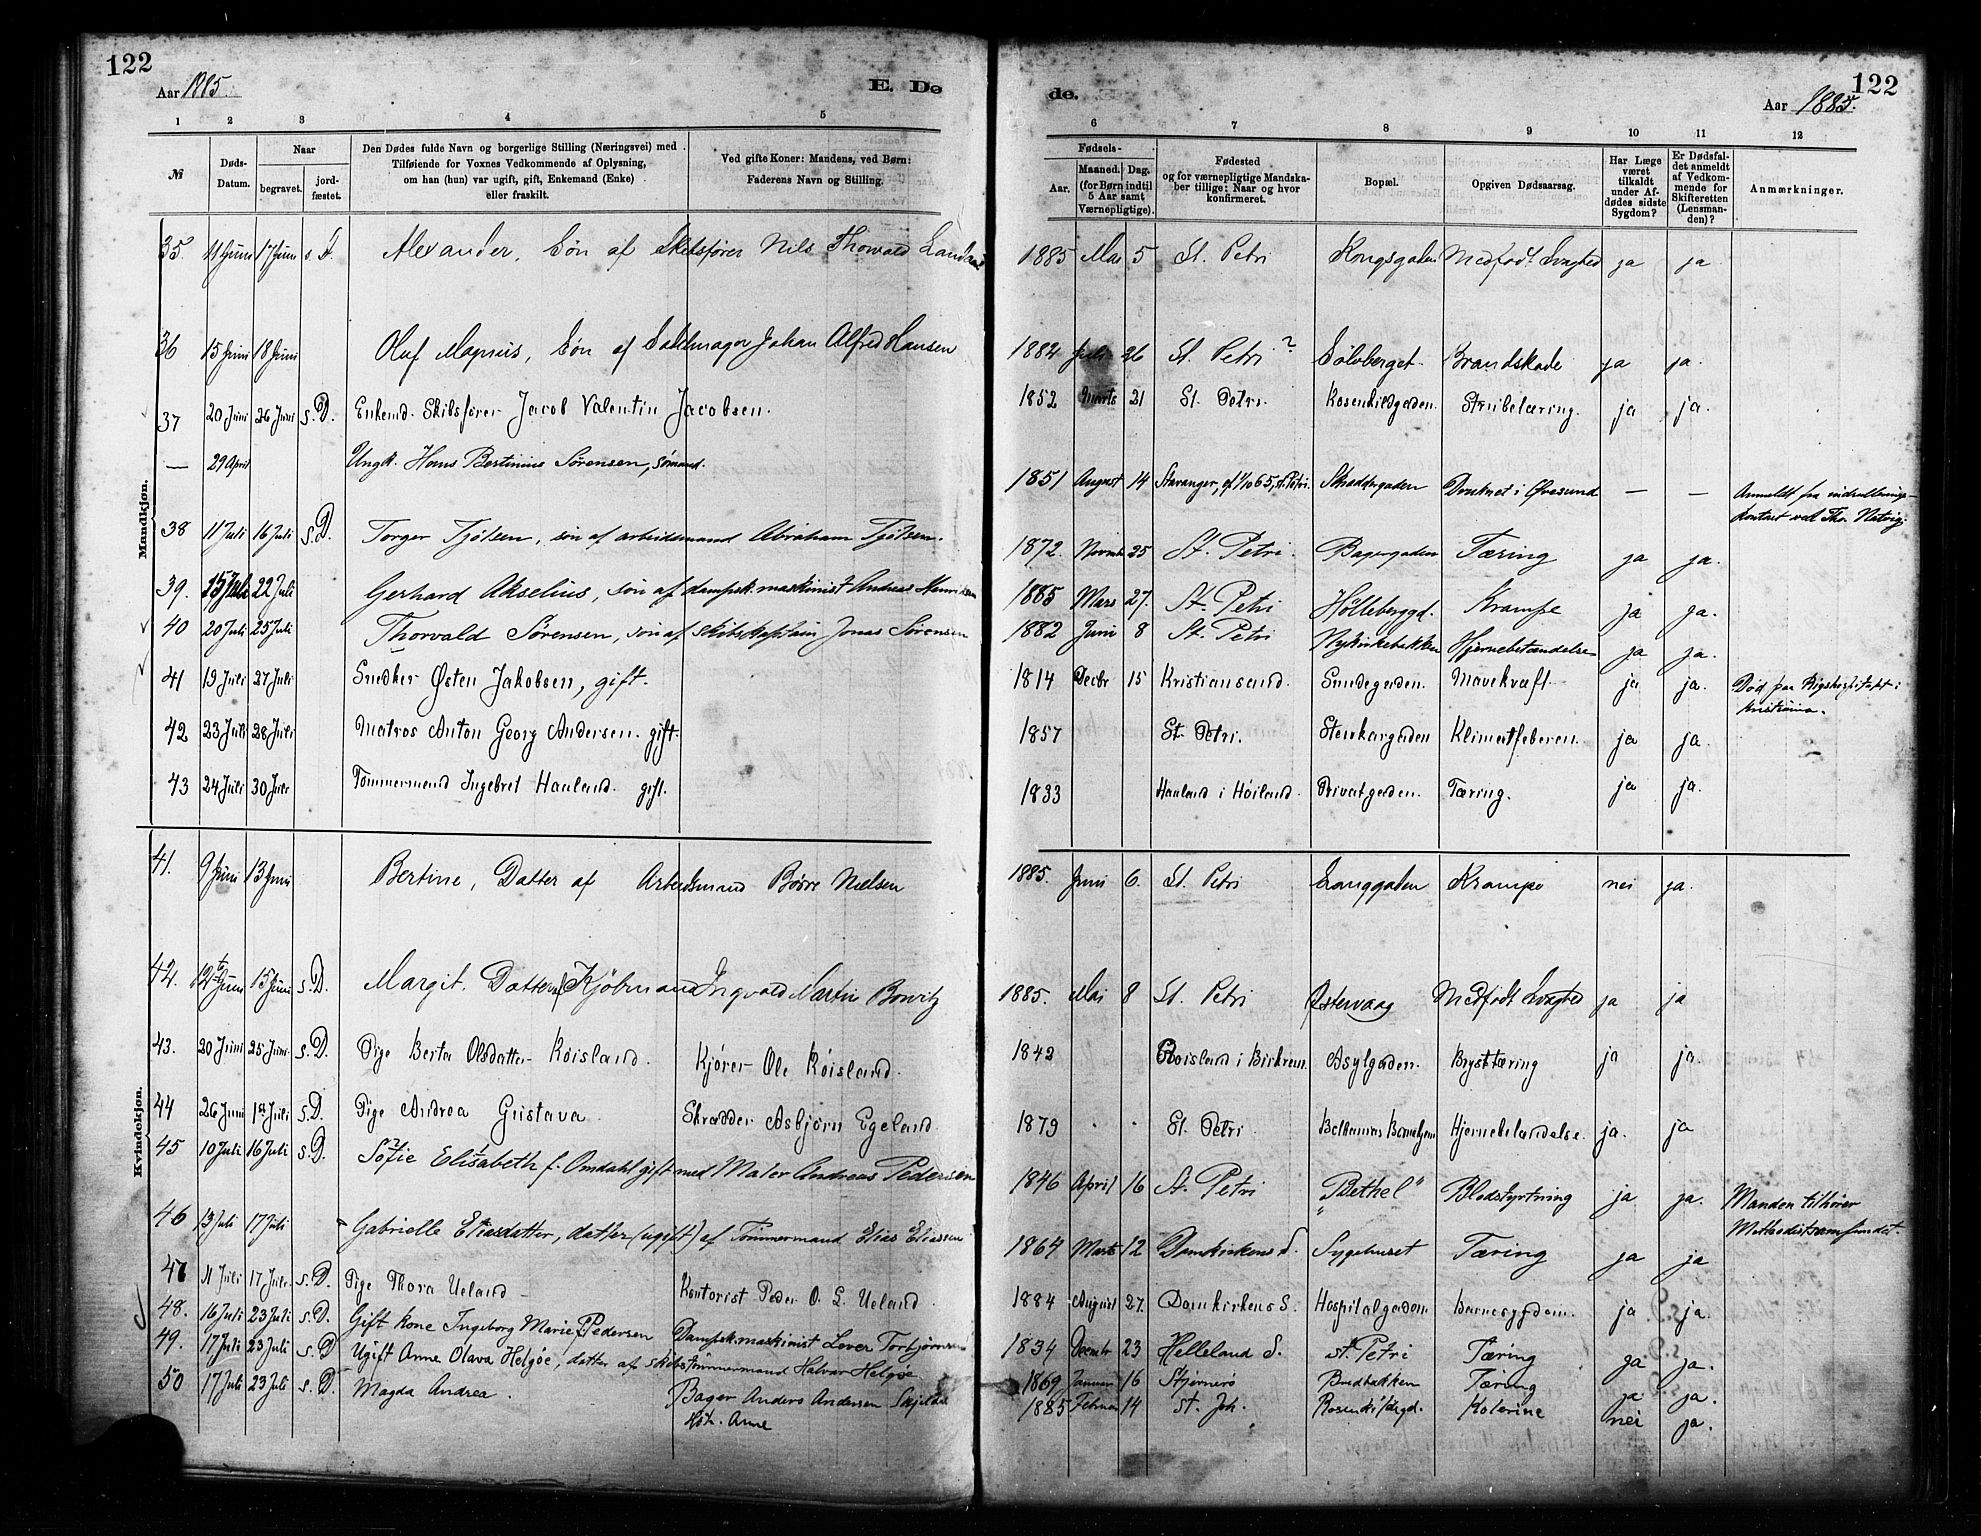 122
Aar 1885.
E. Dø
1 2 3 4 5
№
Døds-Datum.
Naar
begravet.
jord-fæstet.
Den Dødes fulde Navn og borgerlige Stilling (Næringsvei) med
Tilføiende for Voxnes Vedkommende af Oplysning,
om han (hun) var ugift, gift, Enkemand (Enke)
eller fraskilt.
Ved gifte Koner: Mandens, ved Børn:
Faderens Navn og Stilling.
Mandkjøn.
35. 11 Juni 17 Juni s. D. Alexander, Søn af Skibsfører Nils Thorvald
36 15 Juni 18 Juni Oluf Magnus, Søn af Johan Alfred Hansen
37 20 Juni 26 Juni s. D. Enkemd. Skibsfører Jacob Valentin Jacobsen.
— 29 April Ungk. Hans Bertinius Sørensen, sømand.
38 11 Juli 16 Juli s. D. Torger Tjølsen, søn af arbeidsmand Abraham Tjølsen.
39. 15 Juli 22 Juli Gerhard Akselius, søn af dampsk. maskinist Andreas Henriksen
40 20 Juli 25 Juli Thorvald Sørensen, søn af skibskaptain Jonas Sørensen
41 19 Juli 27 Juli Snedker Østen Jakobsen, gift.
42 23 Juli 28 Juli Matros Anton Georg Andersen. gift.
43 24 Juli 30 Juli Tømmermand Ingebret Haaland. gift.
Kvindekjøn.
41. 9 Juni 13 Juni Bertine, Datter af Arbeidsmand Børre Nielsen
42. 12 Juni 15 Juni s. D. Margit, Datter af Kjøbmand Ingvald Martin
43. 20 Juni 25 Juni s. D. Pige Berta Olsdatter Røisland. Kjører Ole Røisland.
44 26 Juni 1st Juli s. D. Pige Andrea Gustava. Skrædder Asbjørn Egeland.
45 10 Juli 16 Juli s. D. Sofie Elisabeth f. Omdahl gift med Maler Andreas Pedersen
46 13 Juli 17 Juli Gabrielle Eliasdatter, datter (ugift) af Tømmermand Elias Eliassen
47 11 Juli 17 Juli s. D. Pige Thora Ueland Kontorist Peder O. L. Ueland.
48. 16 Juli 23 Juli s. D. Gift kone Ingeborg Marie Pedersen Dampsk. maskinist Torbjørnsen
49. 17 Juli 23 Juli s. D Ugift Anne Olava Helgøe, datter af skibstømmermand Halvar Helgøe
50 17 Juli 23 Juli s. D. Magda Andrea. Bager Anders Andersen
Anne
122
Aar 1885.
de.
6 7 8 9 10 11 12
Fødsels-
Aar.
Maaned.
Dag.
(for Børn indtil
5 Aar samt
Værnepligtige).
Fødested
og for værnepligtige Mandska-
ber tillige: Naar og hvor
konfirmeret.
Bopæl.
Opgiven Dødsaarsag.
Har Læge
været
tilkaldt
under Af-
dødes sidste
Sygdom?
Er Dødsfal-
det anmeldt
af Vedkom-
mende for
Skifteretten
(Lensman-
den)?
Anmærkninger.
1885 Mai 5 St. Petri Kongsgaden Medfødt Svaghed ja ja
1882 26 St. Petri? Sølvberget. Brandskade ja ja.
1852 Marts 21 St. Petri. Rosenkildgaden. Strubetæring. ja ja.
1851 August 14 Stavanger, St. Petri. Skraddergaden Druknet i Øresund — — Anmeldt fra indrullerings-
kontoret ved Thr. Natvig.
1872. Novmbr 25 St. Petri. Bagergaden Tæring ja ja.
1885 Mars 27. St. Petri Krampe ja ja.
1882 Juni 8 St. Petri Nykirkebakken Hjernebetændelse ja ja.
1814 Decbr 15 Kristiansand. Smedegaden. Mavekræft. ja ja. Død paa Rigshospitalet i
Kristiania.
1857 St. Petri. Stenkargaden Klimatfeberen. ja ja.
1833 Haaland i Høiland. Privatgaden. Tæring. ja ja.
1885. Juni 6. St. Petri Langgaden Krampe nei ja.
1885. Mai 8 St. Petri Østervaag Medfødt Svaghed ja ja
1842 Røisland i Birkrem. Asylgaden. Brysttæring ja ja.
1879 . . St. Petri. Bethanias Børnehjem Hjernebetændelse. ja. ja
1846 April 16 St. Petri "Bethel" Blodstyrtning ja ja. Manden tilhører
Methodistsamfundet.
1864 Marts 12 Domkirkens S. Sygehuset Tæring ja ja
1884 August 27. Domkirkens S. Hospitalgaden Barnesygdom. ja ja.
1834 Decmbr 23 Helleland S. St. Petri Tæring ja ja.
1869 Januar 16 Stjernerø Bredbakken Tæring ja ja.
1885 Februar 14 St. Joh. Rosenkildegd. Kolerine nei ja.